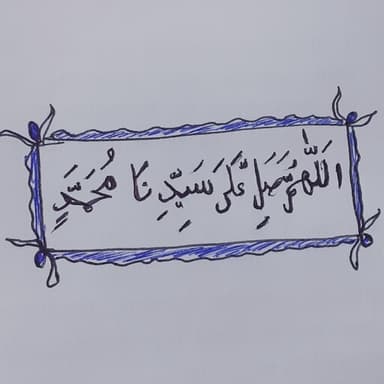 اَللّٰهُمَّ صَلِّ عَلَى سَيِّدِنَا مُحَمَّدٍ